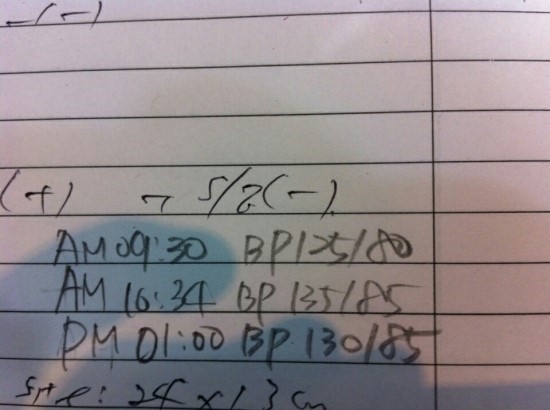 (-)
(+) → S/E(-)
AM 09:30 BP 125/80
AM 10:34 BP 135/85
PM 01:00 BP 130/85
size: 24 x 13 cm